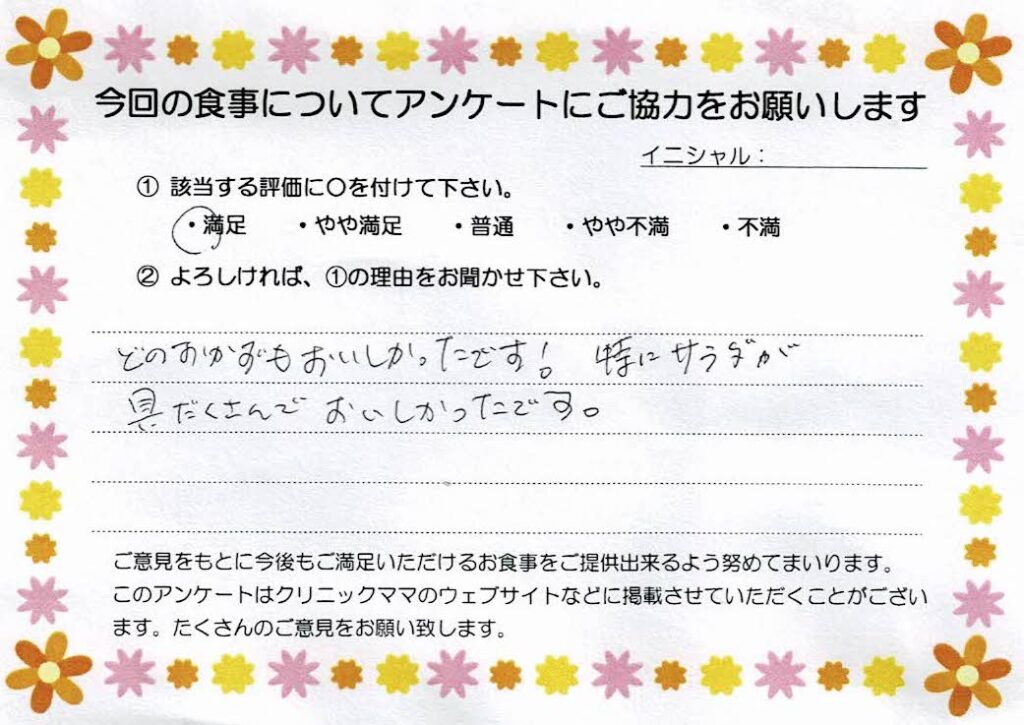 今回の食事についてアンケートにご協力をお願いします
イニシャル：
① 該当する評価に〇を付けて下さい。
・満足 ・やや満足 ・普通 ・やや不満 ・不満
② よろしければ、①の理由をお聞かせ下さい。
どのおかずもおいしかったです！ 特にサラダが
具だくさんでおいしかったです。
ご意見をもとに今後もご満足いただけるお食事をご提供出来るよう努めてまいります。
このアンケートはクリニックママのウェブサイトなどに掲載させていただくことがござい
ます。たくさんのご意見をお願い致します。